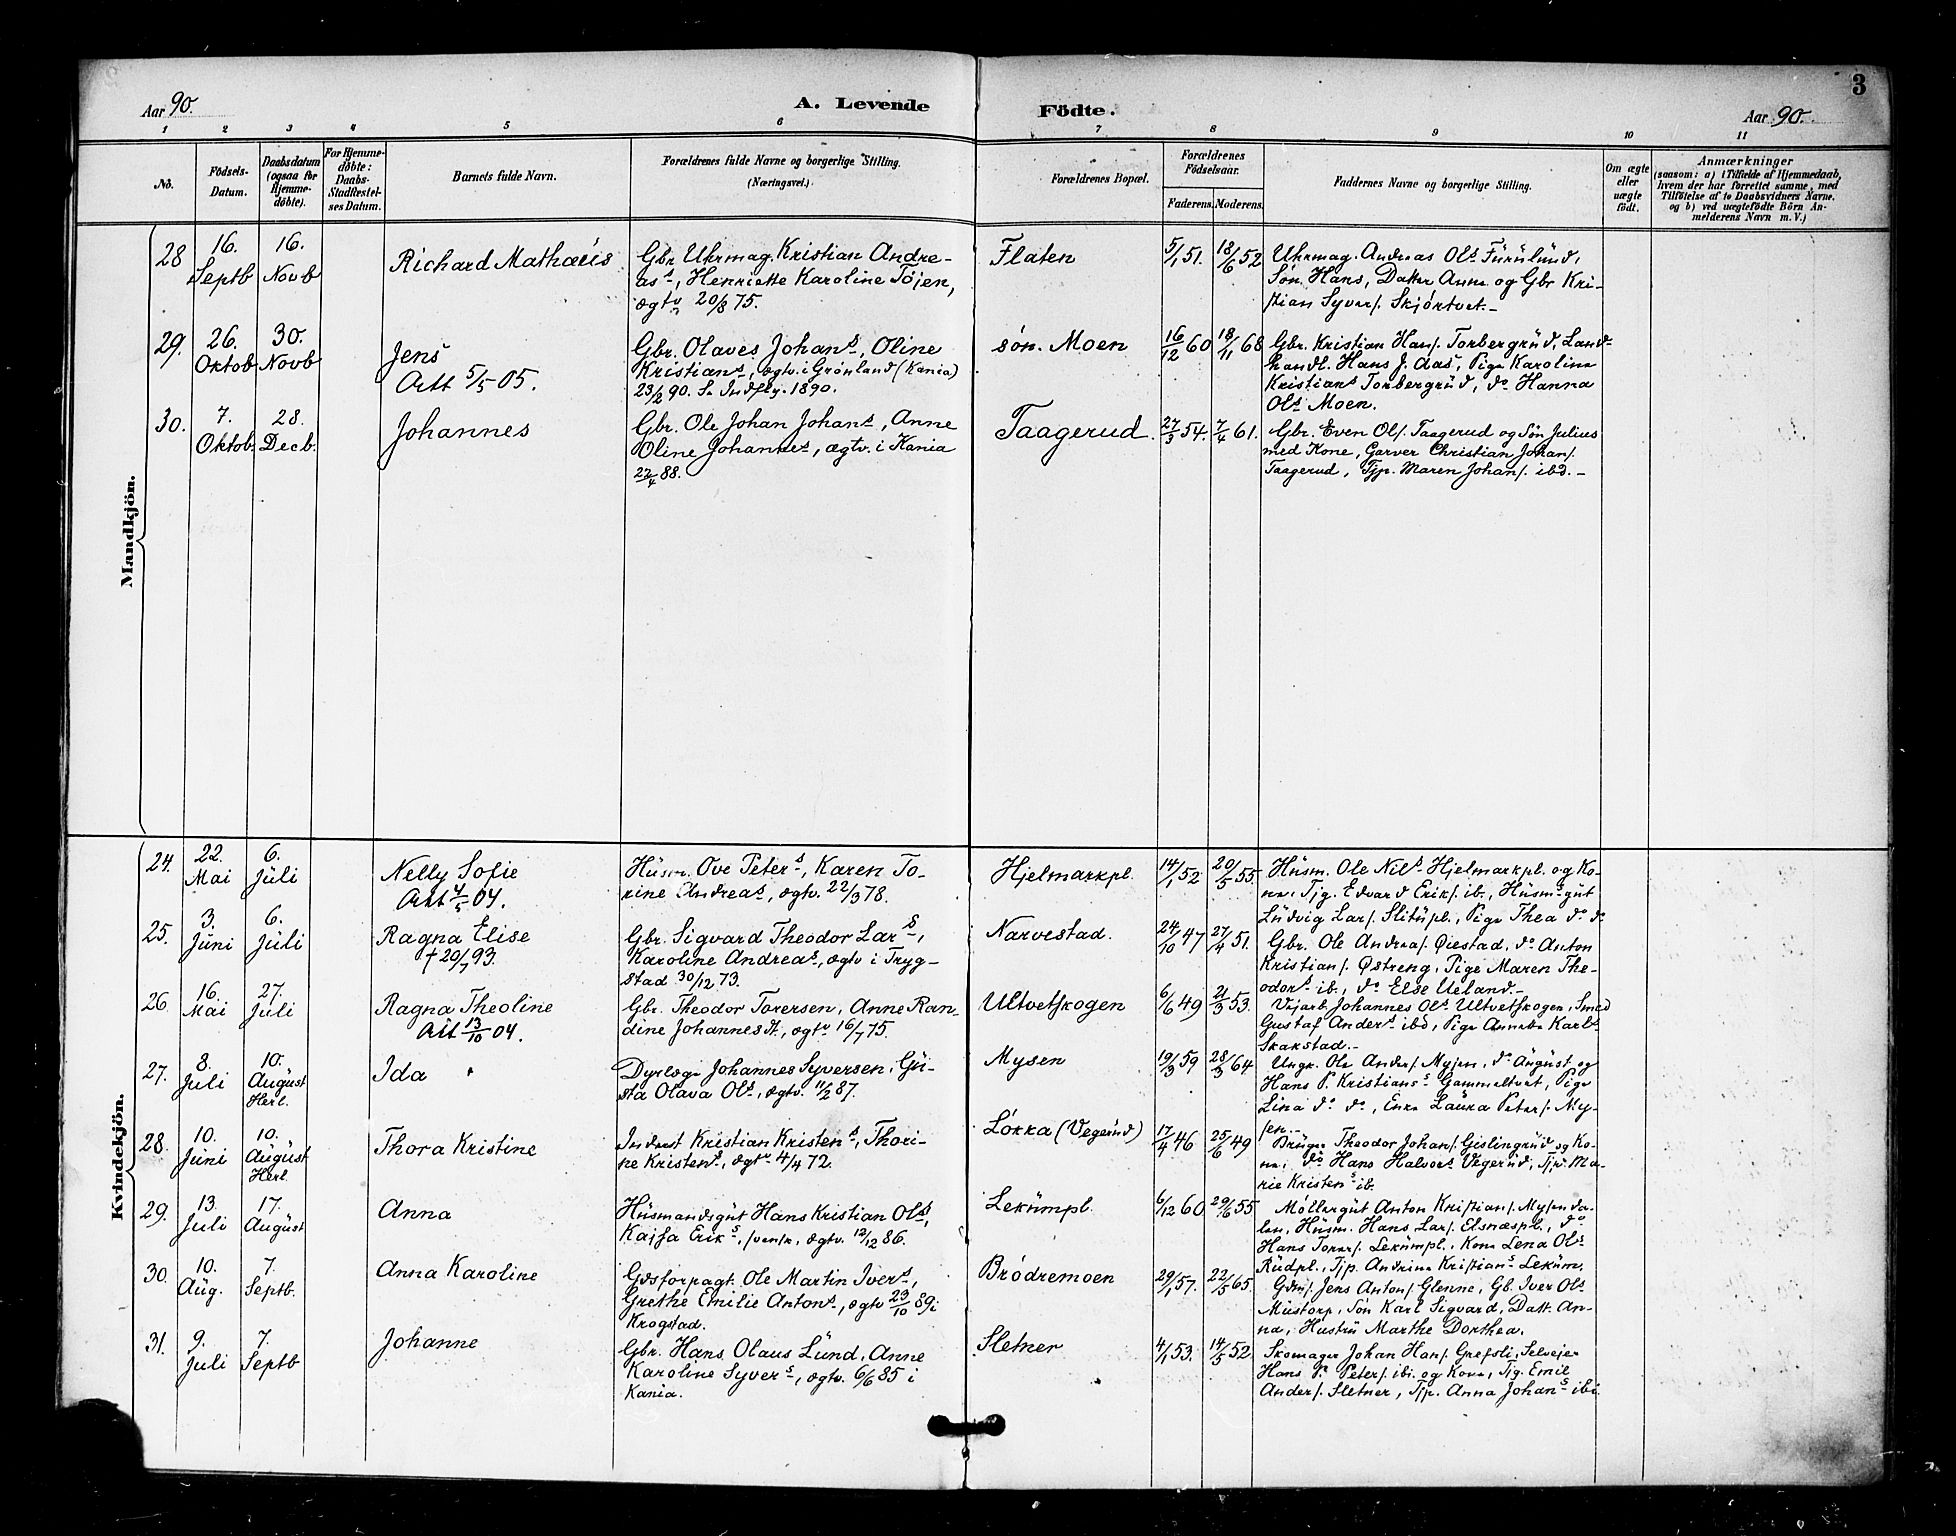 3
Aar 90.
A. Levende
Födte.
Aar 90.
1 2 3 4 5 6 7 8 9 10 11
No.
Födsels-
Datum.
Daabsdatum
(ogsaa for
Hjemme-
döbte).
For Hjemme-
döbte:
Daabs-
Stadfestel-
ses Datum.
Barnets fulde Navn.
Forældrenes fulde Navne og borgerlige Stilling.
(Næringsvei.)
Forældrenes Bopæl.
Forældrenes
Födselsaar.
Faderens.
Moderens.
Faddernes Navne og borgerlige Stilling.
Om ægte
eller
uægte
født.
Anmærkninger
(saasom: a) i Tilfælde af Hjemmedaab,
hvem der har forrettet samme, med
Tilföielse af to Daabsvidners Navne.
og b) ved uægtefödte Börn An-
melderens Navn m. V.)
Mandkjön.
28
16.
Septb
16.
Novb
Richard Mathæus
Gbr Uhrmag. Kristian Andre-
as s, Henriette Karoline Töjen,
ægtv 20/8 75.
Flaten
5/1 51.
18/6 52
Uhrmag. Andreas Ols Furulund,
Søn Hans, Datter Anna og Gbr Kri-
stian Syvers. Skjörtvet.-
29.
26.
Oktob
30.
Novb
Jens
Att 5/5 05.
Gbr. Olaves Johans, Oline
Kristians, ægtv. i Grønland (Kania)
23/2 90. Se Indfly. 1890.
søn. Moen
16/12 60
18/11 68
Gbr. Kristian Hans. Torbergrud, Land-
handl. Hans J. Aas, Pige Karoline
Kristians Torbergrud, do Hanna
Ols Moen.
30.
7.
Oktob.
28.
Decb.
Johannes
Gbr. Ole Johan Johans, Anne
Oline Johannes, ægtv. i Kania
22/4 88.
Taagerud.
27/3 54.
7/4 61.
Gbr. Even Ols. Taagerud og Søn Julius
med Kone, Garver Christian Johans.
Taagerud, Tjp. Maren Johans. ibd.-
Kvindekjön.
24.
22.
Mai
6.
Juli
Nelly Sofie
Att 4/5 04.
Husm. Ove Peters, Karen To-
rine Andreas, ægtv. 22/3 78.
Hjelmarkpl.
14/1 52
20/5 55
Husm. Ole Nils Hjelmarkpl. og Ko-
na, Tjg. Edvard Eriks. ib., Husmsgut
Ludvig Lars. Slitupl., Pige Thea do do
25.
3.
Juni
6.
Juli
Ragna Elise
† 20/7 93.
Gbr. Sigvard Theodor Lars,
Karoline Andreas, ægtv i Tryg-
stad 30/12 73.
Narvestad.
24/10 47
27/4 51.
Gbr. Ole Andreas. Öiestad, do Anton
Kristians. Østreng, Pige Maren The-
odors ib., do Else Ueland.-
26.
16.
Mai
27.
Juli
Ragna Theoline
Att 13/10 04.
Gbr. Theodor Torersen, Anne Ran-
dine Johannesdt, ægtv 16/7 75.
Ultvetskogen
6/6 49
21/3 53.
Vejarb. Johannes Ols Ultvetskogen, Smed
Gustaf Anders ibd, Pige Annette Karls
Skakstad.-
27.
8.
Juli
10.
August
Herl.
Ida
Dyrlæge Johannes Syversen, Gu-
sta Olava Ols, ægtv. 11/2 87.
Mysen
19/3 59
28/3 64
Ungk. Ole Anders. Mysen, do August og
Hans P. Kristians Gammeltvet, Pige
Lina do do, Enke Laura Peters. My-
sen.-
28.
10.
Juni
10.
August
Herl.
Thora Kristine
Inderst Kristian Kristens, Thori-
ne Kristens, ægtv. 4/4 72.
Løkka (Vegerud)
17/4 46
25/6 49
Bruger Theodor Johans. Gislingrud og Ko-
na, do Hans Halvors Vegerud, Tjp. Ma-
rie Kristens ib.
29.
13.
Juli
17.
August
Anna
Husmandsgut Hans Kristian Ols,
Kajsa Eriks, svensk, ægtv. 12/12 86.
Lekumpl.
6/12 60
29/6 55
Møllergut Anton Kristians. Mysenda-
len, Husm. Hans Lars. Elsnæspl., do
Hans Torers. Lekumpl., Kona Lena Ols
Rudpl., Tjp. Andrine Kristians Lekum.
30.
10.
Aug.
7.
Septb.
Anna Karoline
Gdsforpagt. Ole Martin Ivers,
Grethe Emilie Antons, ægtv 23/10 89 i
Krogstad.
Brødremoen
29/1 57.
22/5 65.
Gdm. Jens Antons. Glenne, Gb. Iver Ols
Mustorp, Søn Karl Sigvard, Datt. An-
na, Hustru Marthe Dorthea.
31.
9.
Juli
7.
Septb
Johanne
Gbr. Hans Olaus Lund, Anne
Karoline Syvers, ægtv. 6/6 85 i
Kania.
Sletner
4/1 53.
14/5 52
Skomager Johan Hans. Grefsli, Selvejer
Hans P. Peters. ibi. og Kona, Tjg. Emil
Anders. Sletner, Tjp. Anna Johans ibi